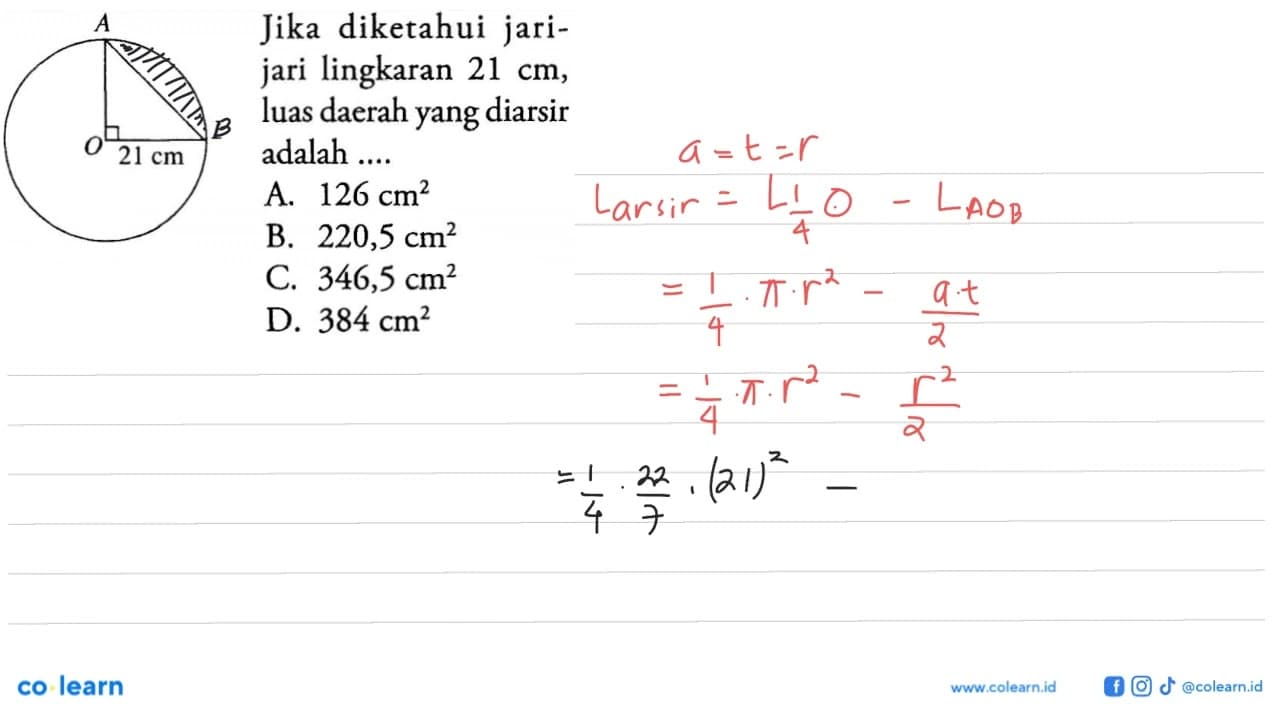 A
B
O
21 cm
Jika diketahui jari-
jari lingkaran 21 cm,
luas daerah yang diarsir
adalah ....
A. 126 cm²
B. 220,5 cm²
C. 346,5 cm²
D. 384 cm²
a = t = r
Larsir = L 1/4 O - L AOB
= 1/4 . π . r² - a.t/2
= 1/4 . π . r² - r²/2
= 1/4 . 22/7 . (21)² -
co learn
www.colearn.id
@colearn.id